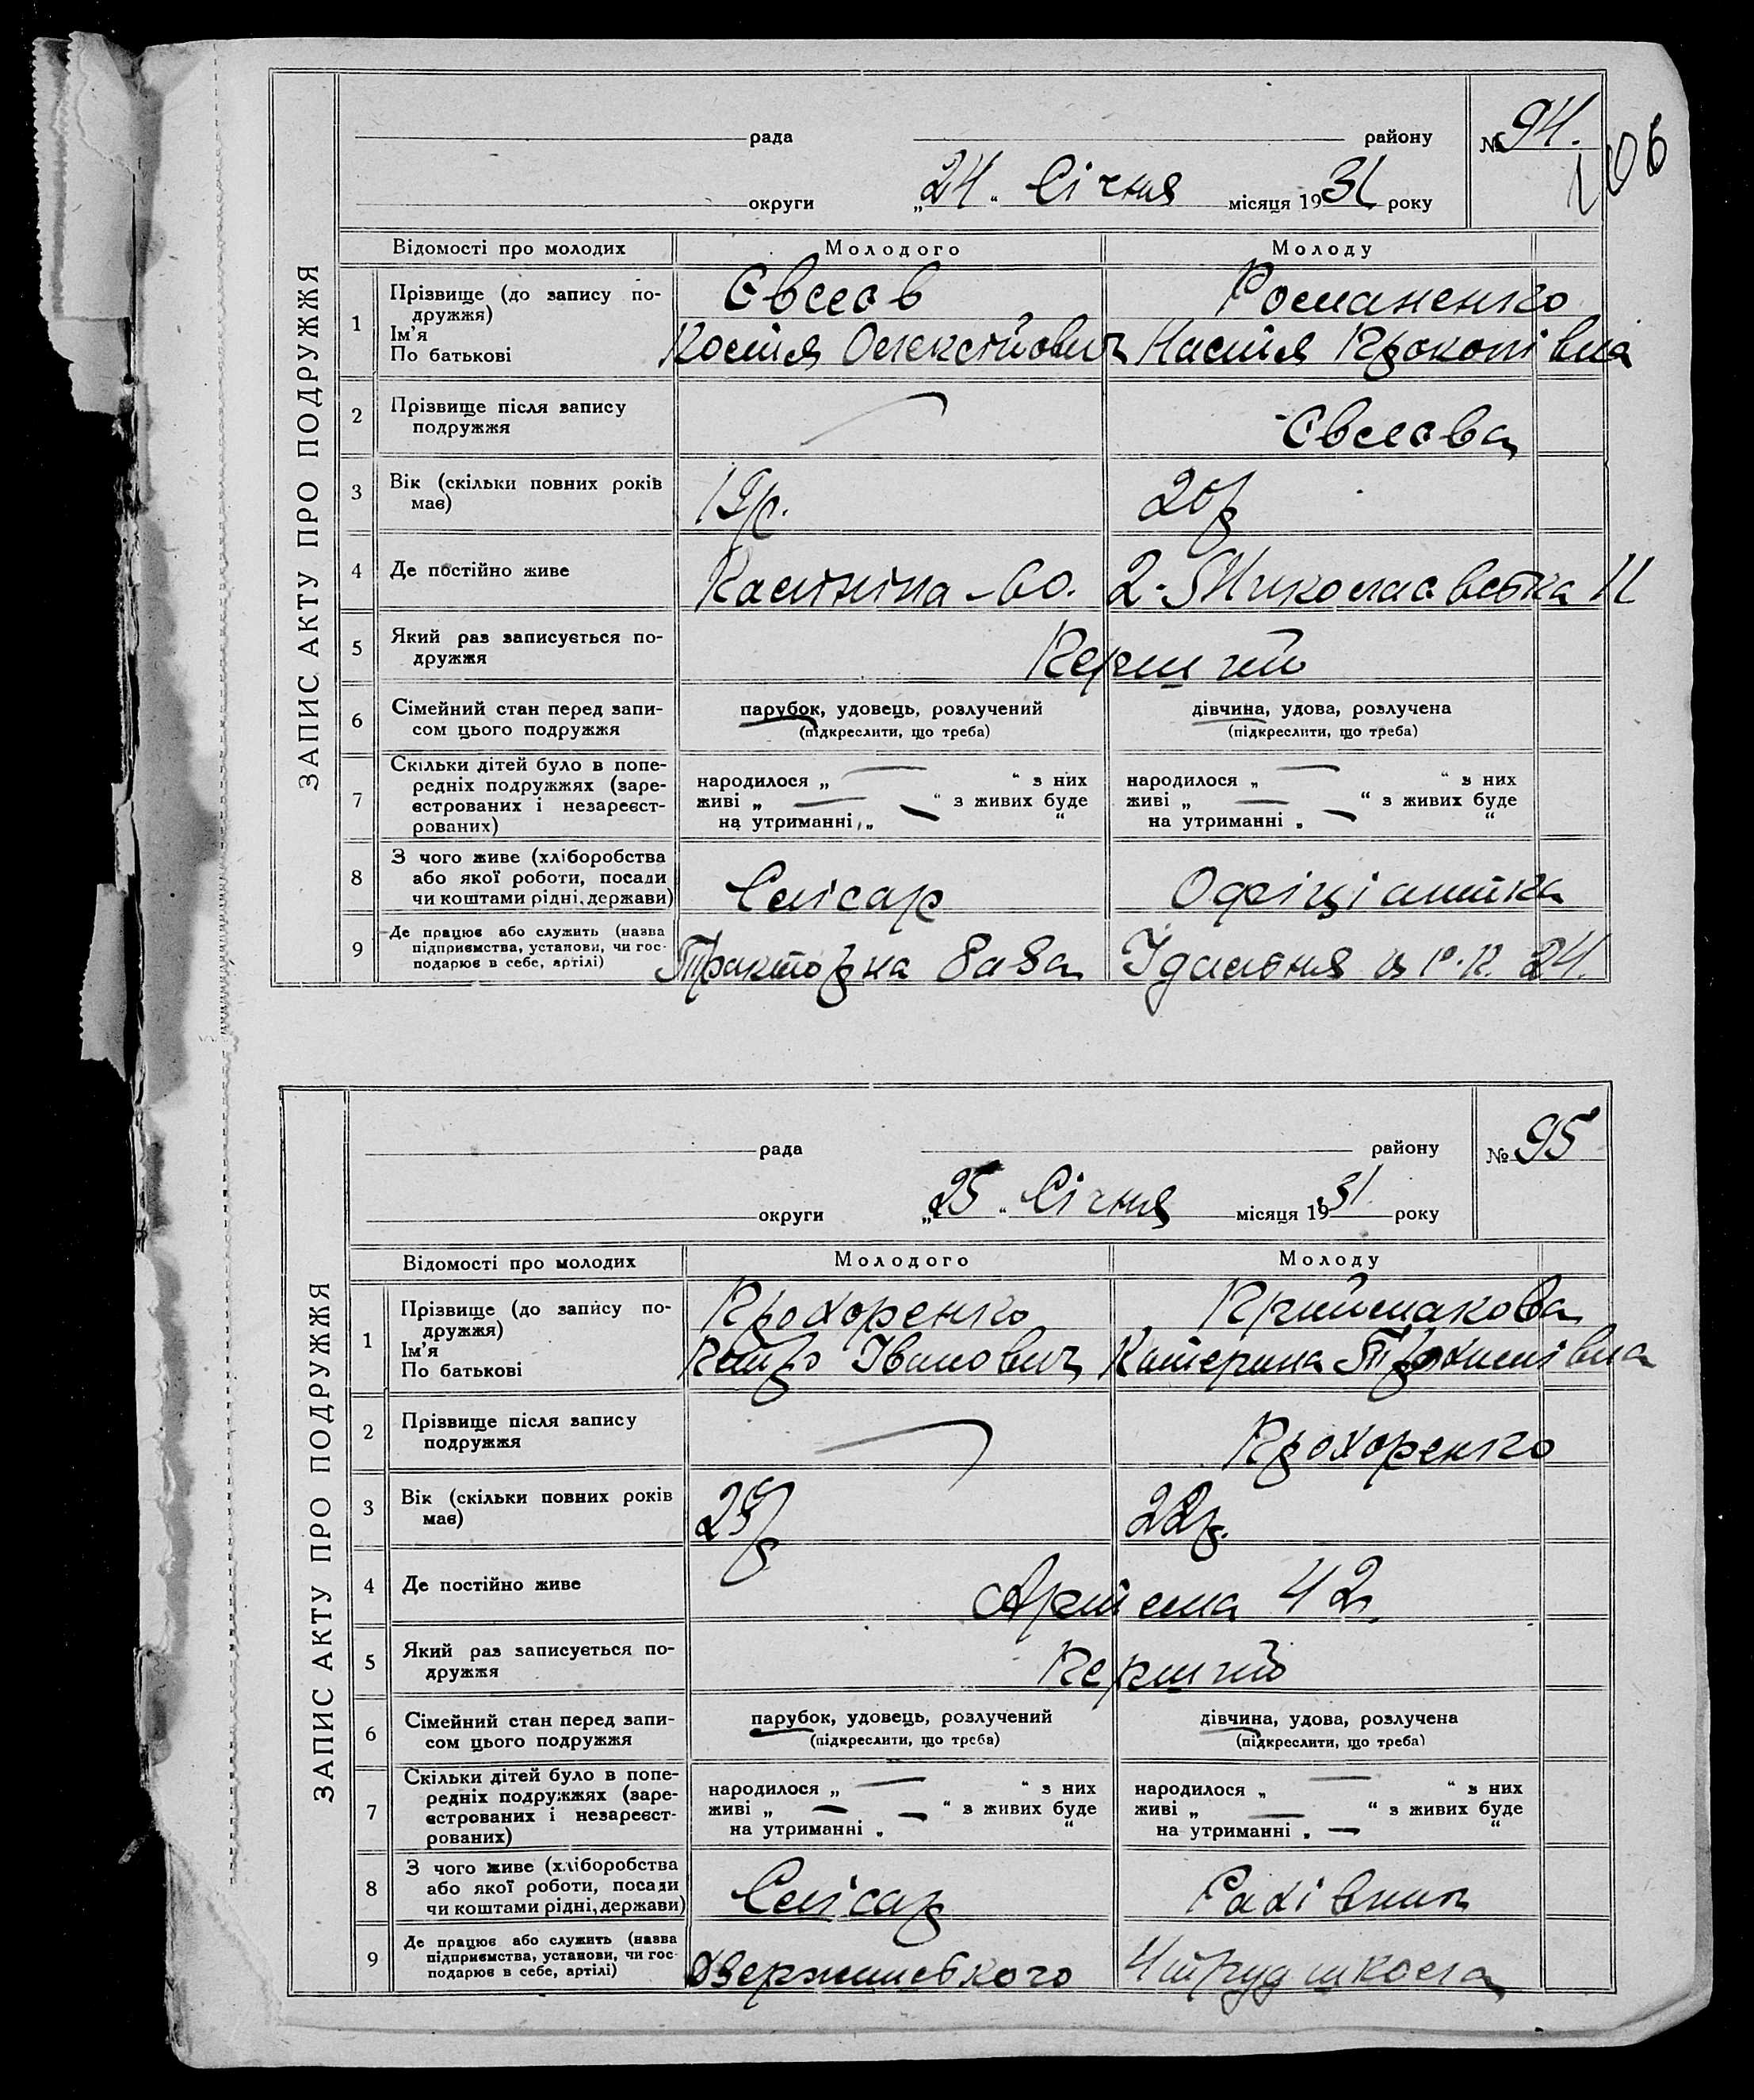 ЗАПИС АКТУ ПРО ПОДРУЖЖЯ
рада району № 94.
106
округи „24“ Січня місяця 1931 року
Відомості про молодих Молодого Молоду
1 Прізвище (до запису по-
дружжя)
Ім'я
По батькові
Євсєєв Романенко
Костя Олексійович Настя Прокопівна
2 Прізвище після запису
подружжя
Євсєєва
3 Вік (скільки повних років
має)
19р. 20р
4 Де постійно живе
2-Миколаєвська 11
5 Який раз записується по-
дружжя
Перший
6 Сімейний стан перед запи-
сом цього подружжя
парубок, удовець, розлучений дівчина, удова, розлучена
(підкреслити, що треба) (підкреслити, що треба)
7 Скільки дітей було в попе-
редніх подружжях (заре-
єстрованих і незареєст-
рованих)
народилося „ “ з них народилося „ “ з них
живі „ “ з живих буде живі „ “ з живих буде
на утриманні „ “ на утриманні „ “
8 З чого живе (хліборобства
або якої роботи, посади
чи коштами рідні, держави)
Слісар Офіціантка
9 Де працює або служить (назва
підприємства, установи, чи гос-
подарює в себе, артілі)
Тракторна база Їдальня 24.
ЗАПИС АКТУ ПРО ПОДРУЖЖЯ
рада району № 95
округи „25“ Січня місяця 1931 року
Відомості про молодих Молодого Молоду
1 Прізвище (до запису по-
дружжя)
Ім'я
По батькові
Прохоренко Приймакова
Петро Іванович Катерина Трохимівна
2 Прізвище після запису
подружжя
Прохоренко
3 Вік (скільки повних років
має)
22р.
4 Де постійно живе
Артема 42
5 Який раз записується по-
дружжя
Перший
6 Сімейний стан перед запи-
сом цього подружжя
парубок, удовець, розлучений дівчина, удова, розлучена
(підкреслити, що треба) (підкреслити, що треба)
7 Скільки дітей було в попе-
редніх подружжях (заре-
єстрованих і незареєст-
рованих)
народилося „ “ з них народилося „ “ з них
живі „ “ з живих буде живі „ “ з живих буде
на утриманні „ “ на утриманні „ “
8 З чого живе (хліборобства
або якої роботи, посади
чи коштами рідні, держави)
Слісар Рахівник
9 Де працює або служить (назва
підприємства, установи, чи гос-
подарює в себе, артілі)
Дзержинського 4 труд школа